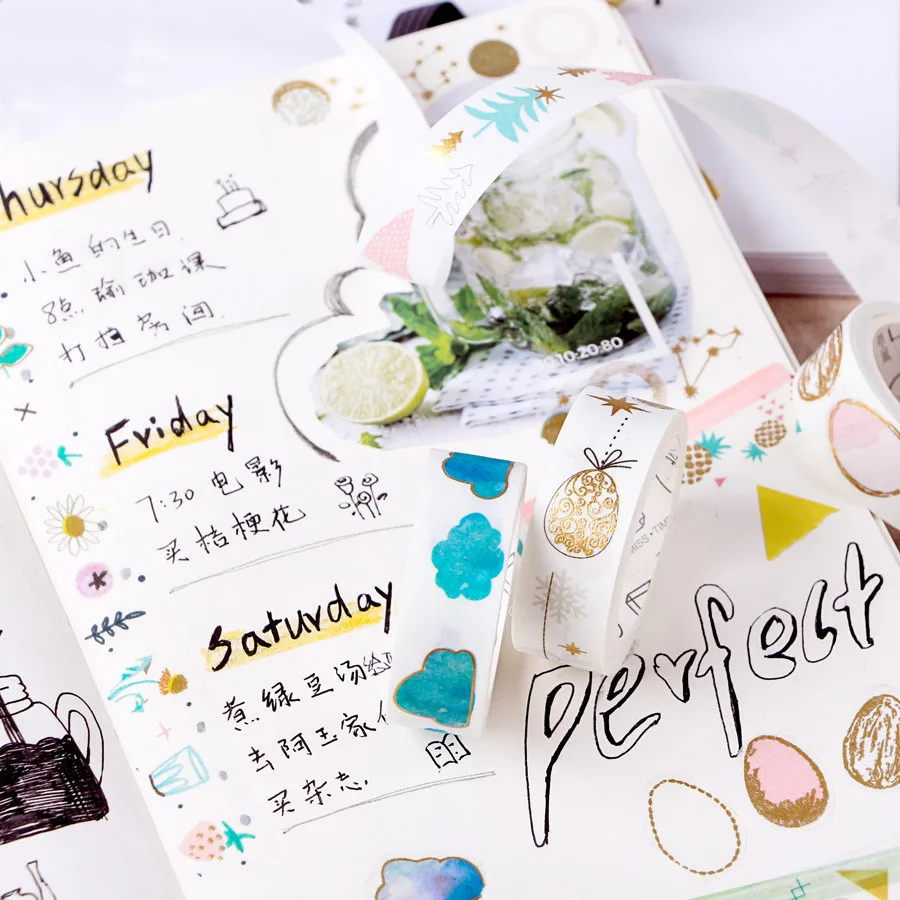 hursday
小鱼的生日
8点 瑜珈课
打扫房间
Friday
7:30 电影
买桔梗花
Saturday
煮绿豆汤给
去阿玉家
买杂志
10:20:80
MISS·TIM
perfect